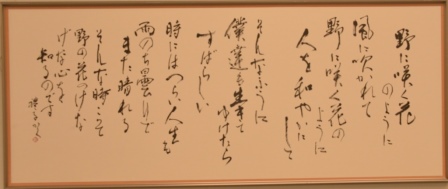 野に咲く花
のように
風に吹かれて
野に咲く花の
ように
人を和やかにして
そんなふうに
僕達も生きて
ゆけたら
すばらしい
時にはつらい人生も
雨のち曇りで
また晴れる
そんな時こそ
野の花のけな
げな心を
知るのです